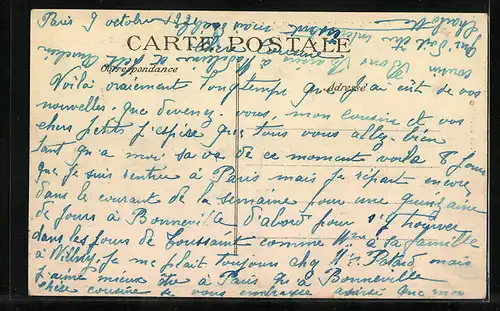 Paris 9 octobre
CARTE POSTALE
Chère cousine
Correspondance
Adresse
Voilà vraiement longtemps que j'ai eut de vos
nouvelles que devenez vous, mon cousine et vos
chers petits j'espère que tous vous allez bien
tant qu'a moi sa va de ce moment voila 8 jours
que je suis rentrée à Paris mais je répart encore
dans le courant de la semaine pour une quinzaine
de jours à Bonneville d'abord pour s'y
dans les jours de Toussaint comme Mme à sa famille
à je me plait toujours chez Mme mais
j'aime mieux être à Paris qu'à Bonneville
chère cousine je vous embrasse ainsi que mon
cousin
Charlotte